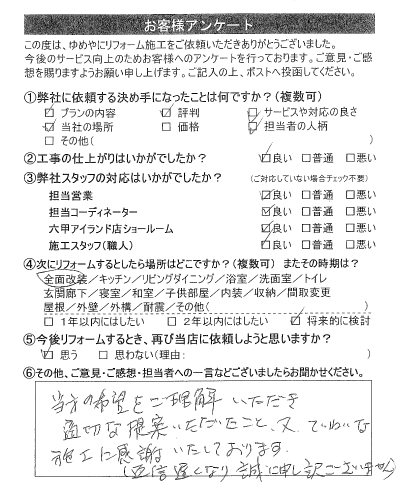 お客様アンケート
この度は、ゆめやにリフォーム施工をご依頼いただきありがとうございました。
今後のサービス向上のためお客様へのアンケートを行っております。ご意見・ご感
想を賜りますようお願い申し上げます。ご記入の上、ポストへ投函してください。
①弊社に依頼する決め手になったことは何ですか?(複数可)
☑プランの内容 ☑評判 ☑サービスや対応の良さ
☑当社の場所 □価格 ☑担当者の人柄
□その他( )
②工事の仕上がりはいかがでしたか? ☑良い □普通 □悪い
③弊社スタッフの対応はいかがでしたか? (ご対応していない場合チェック不要)
担当営業 ☑良い □普通 □悪い
担当コーディネーター ☑良い □普通 □悪い
六甲アイランド店ショールーム ☑良い □普通 □悪い
施工スタッフ(職人) ☑良い □普通 □悪い
④次にリフォームするとしたら場所はどこですか?(複数可) またその時期は?
全面改装/キッチン/リビングダイニング/浴室/洗面室/トイレ
玄関廊下/寝室/和室/子供部屋/内装/収納/間取変更
屋根/外壁/外構/耐震/その他( )
□1年以内にはしたい □2年以内にはしたい ☑将来的に検討
⑤今後リフォームするとき、再び当店に依頼しようと思いますか?
☑思う □思わない(理由: )
⑥その他、ご意見・ご感想・担当者への一言などございましたらお聞かせください。
当方の希望をご理解いただき
適切な提案いただいたこと、又、ていねいな
施工に感謝いたしております。
(返信遅くなり誠に申し訳ございません)